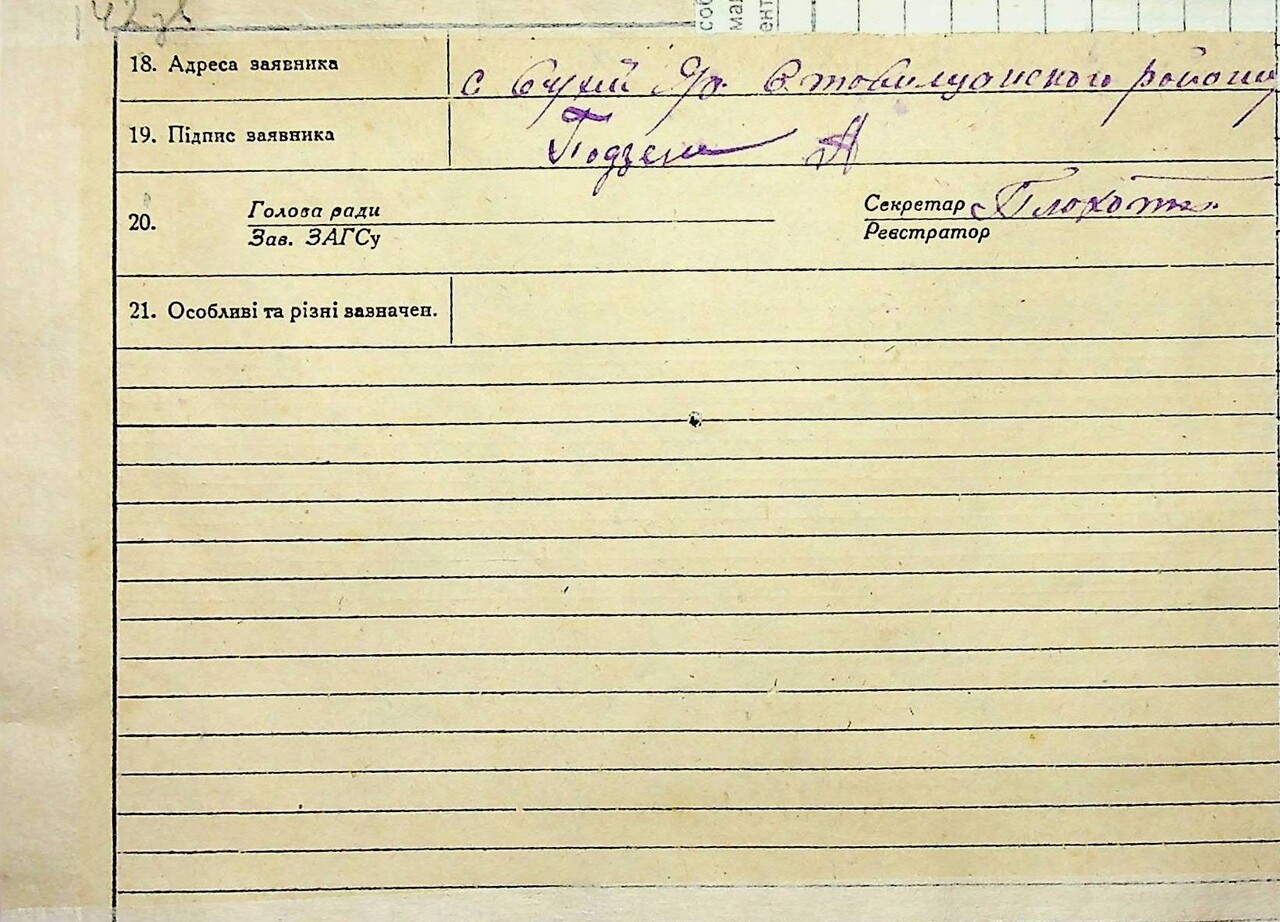 142 зв
соб
мал
ент
18. Адреса заявника с Сухий Яр. Ставищанского району
19. Підпис заявника А
20. Голова ради Секретар
Зав. ЗАГСу Реєстратор
21. Особливі та різні зазначен.